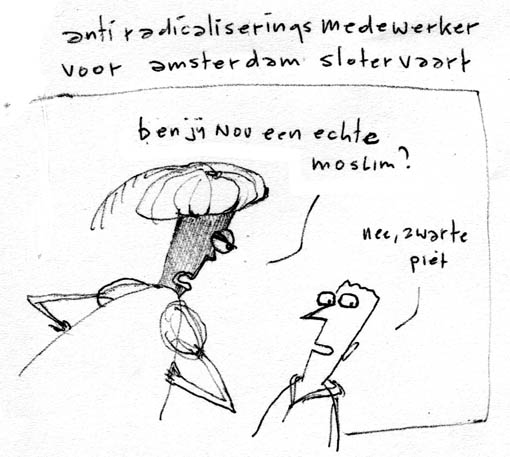 anti radicaliserings medewerker
voor amsterdam slotervaart
ben jij nou een echte
moslim?
nee, zwarte
piet